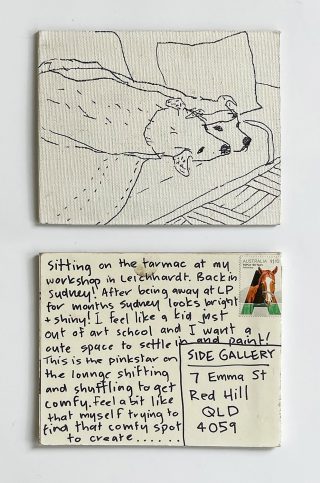 Sitting on the tarmac at my
workshop in Leichhardt. Back in
Sydney! After being away at LP
for months Sydney looks bright
+ shiny! I feel like a kid just
out of art school and I want a
cute space to settle in and paint!
This is the pinkstar on
the lounge shifting
and shuffling to get
comfy. feel a bit like
that myself trying to
find that comfy spot
to create......
AUSTRALIA $1.10
SIDE GALLERY
7 Emma St
Red Hill
QLD
4059